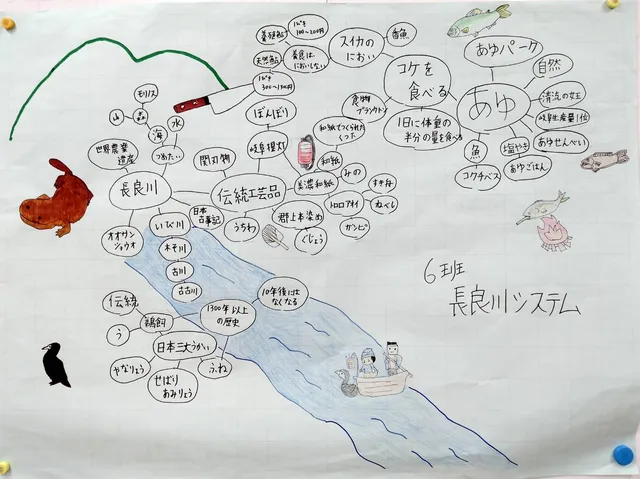 養殖鮎
1ぴき
100~200円
天然鮎
養食は
においしない
1ぴき
300~
スイカの
におい
香魚
コケを
食べる
食物
プランクトン
1日に体重の
半分の量を食べる
あゆパーク
あゆ
自然
清流の女王
岐阜生産量1位
あゆせんべい
塩やき
あゆごはん
魚
コクチバス
モリノス
山
森
海
水
つめたい
世界農業
遺産
長良川
オオサン
ショウオ
いび川
木そ川
古川
古古川
日本
古事記
関刃物
伝統工芸品
ぼんぼり
岐阜提灯
和紙でつくられた
和紙
美濃和紙
みの
トロロアオイ
すき舟
ねべし
ガンピ
郡上本染め
ぐじょう
うちわ
伝統
う
鵜飼
日本三大うかい
やなりょう
せばり
あみりょう
ふね
1300年以上
の歴史
10年後には
なくなる
6班
長良川システム